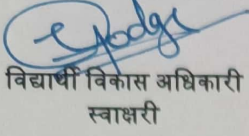 विद्यार्थी विकास अधिकारी
स्वाक्षरी